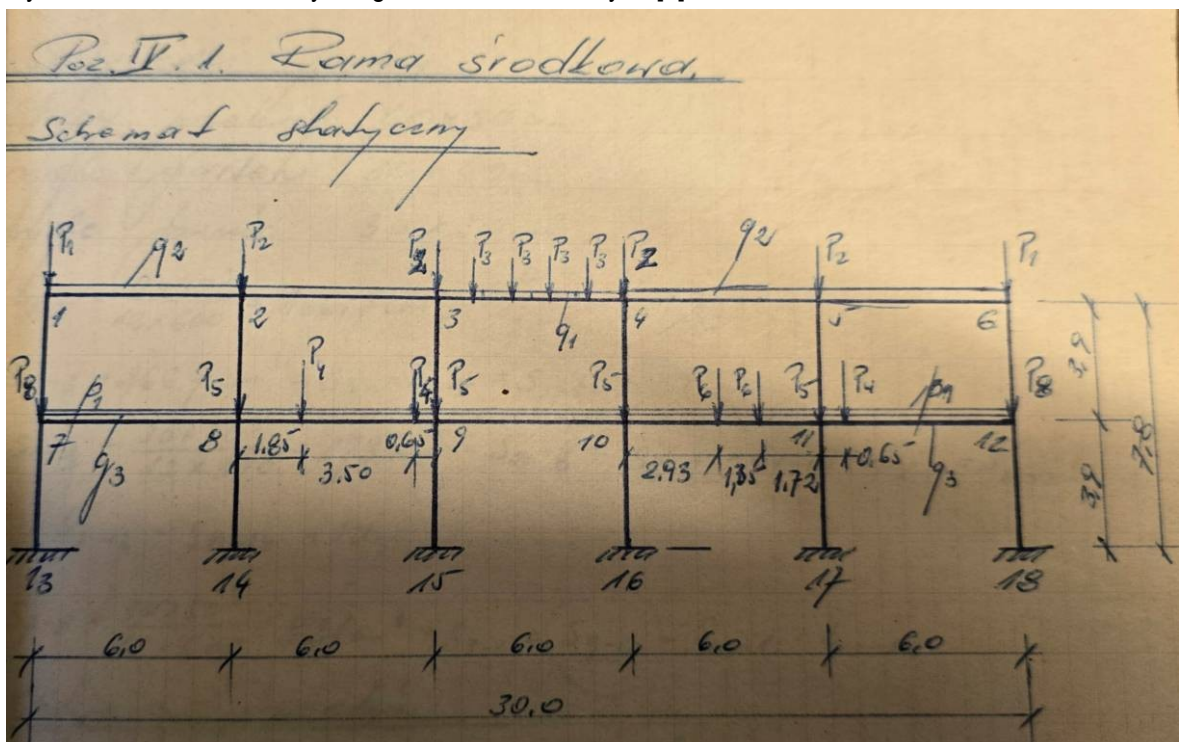 Poz. IV. 1. Rama środkowa.
Schemat statyczny
P1 q2 P2 P2 P3 P3 P3 P3 P2 q2 P2 P1
1 2 3 q1 4 5 6
P8 p1 P5 P4 P4 P5 P5 P6 P6 P5 P4 p1 P8
7 q3 8 1.85 3.50 0.65 9 10 2.93 1,35 1.72 11 0.65 q3 12
3,9 3,9 7,8
13 14 15 16 17 18
6,0 6,0 6,0 6,0 6,0
30.0